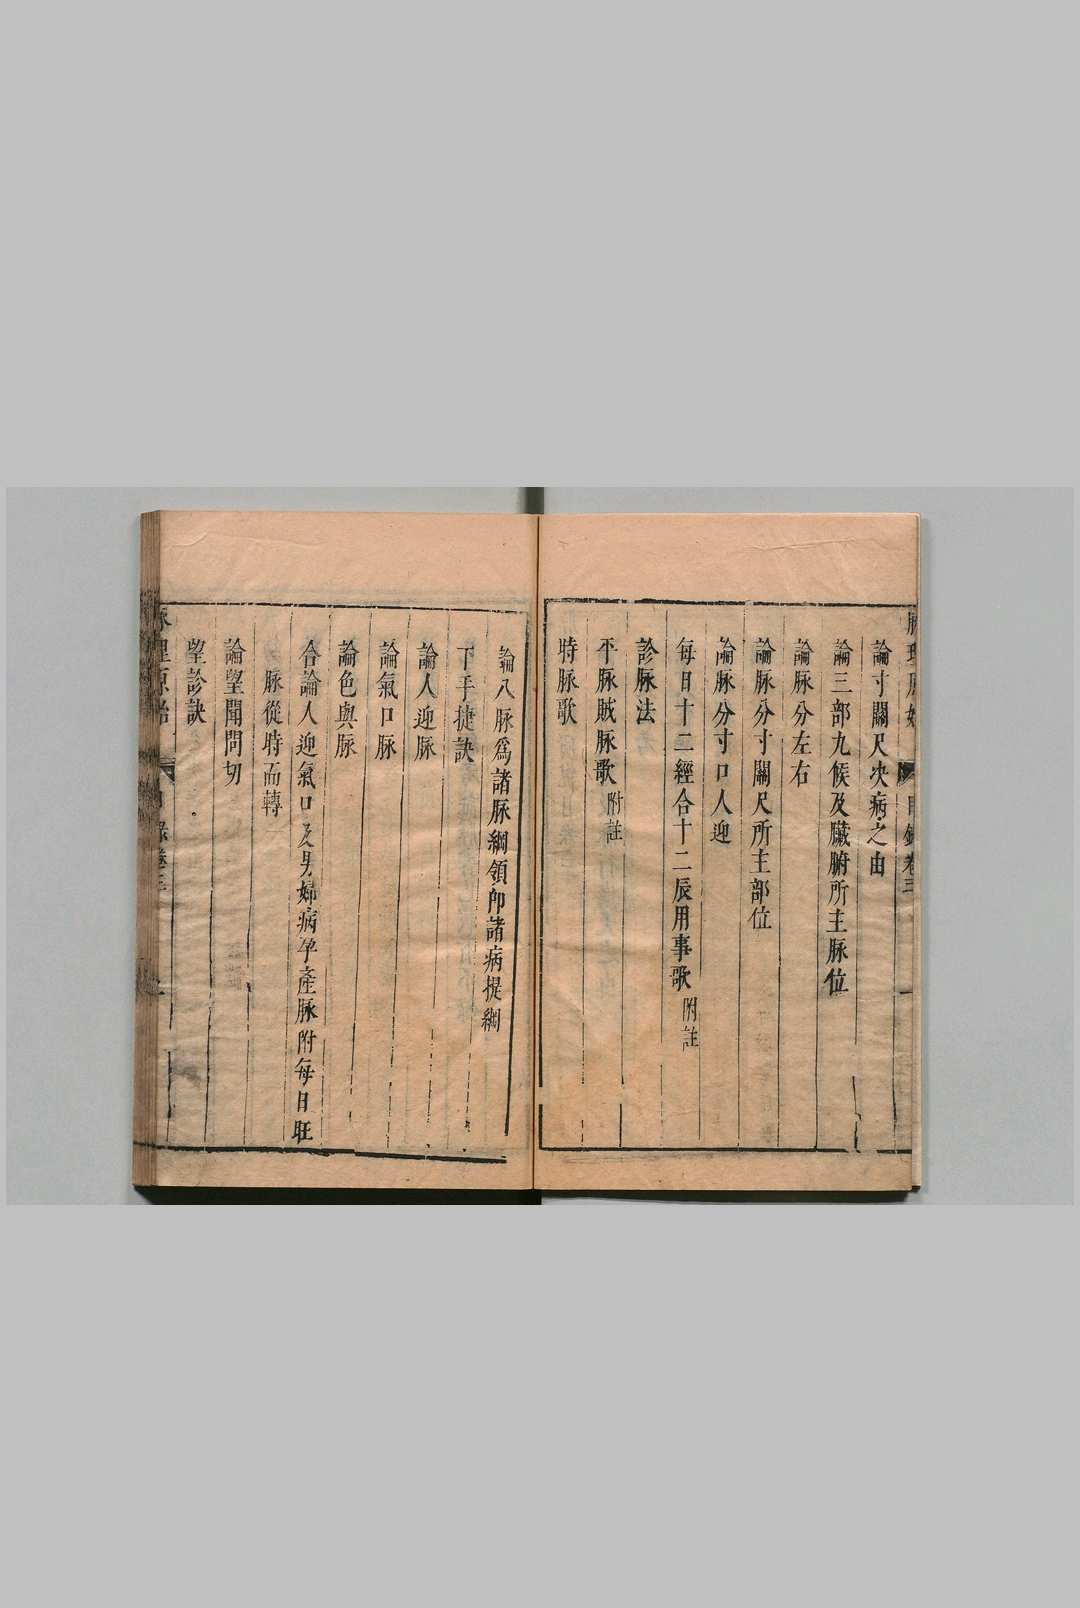 脉理原始 目錄卷三 一
論寸關尺决病之由
論三部九候及臟腑所主脉位
論脉分左右
論脉分寸關尺所主部位
論脉分寸口人迎
每日十二經合十二辰用事歌 附註
診脉法
平脉賊脉歌 附註
時脉歌
論八脉爲諸脉綱領卽諸病提綱
下手捷訣
論人迎脉
論氣口脉
論色與脉
合論人迎氣口及男婦病孕產脉附每日旺
脉從時而轉
論望聞問切
望診訣
脉理原始 目錄卷三